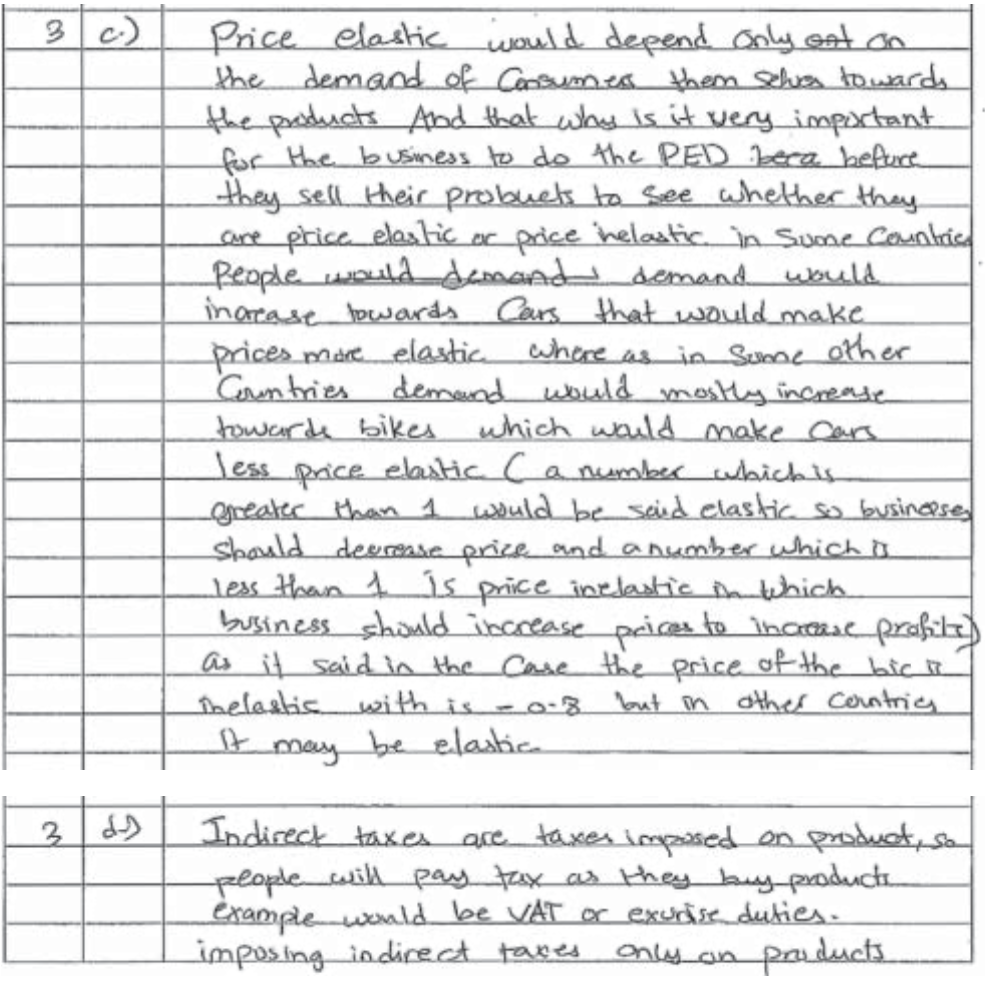 3 c.) Price elastic would depend only out on
the demand of Consumers them selves towards
the products And that why is it very important
for the business to do the PED bera before
they sell their probuets to see whether they
are price elastic or price inelastic. in Some Countries
People would demand demand would
increase towards Cars that would make
prices more elastic where as in Some other
Countries demand would mostly increase
towards bikes which would make Cars
less price elastic ( a number which is
greater than 1 would be said elastic so businesses
should decrease price and a number which is
less than 1 is price inelastic in which
business should increase prices to increase profits)
as it said in the Case the price of the bic is
inelastic with is -0.8 but in other countries
it may be elastic
3 d.) Indirect taxes are taxes imposed on product, so
people will pay tax as they buy products
example would be VAT or exurise duties.
imposing indirect taxes only on products